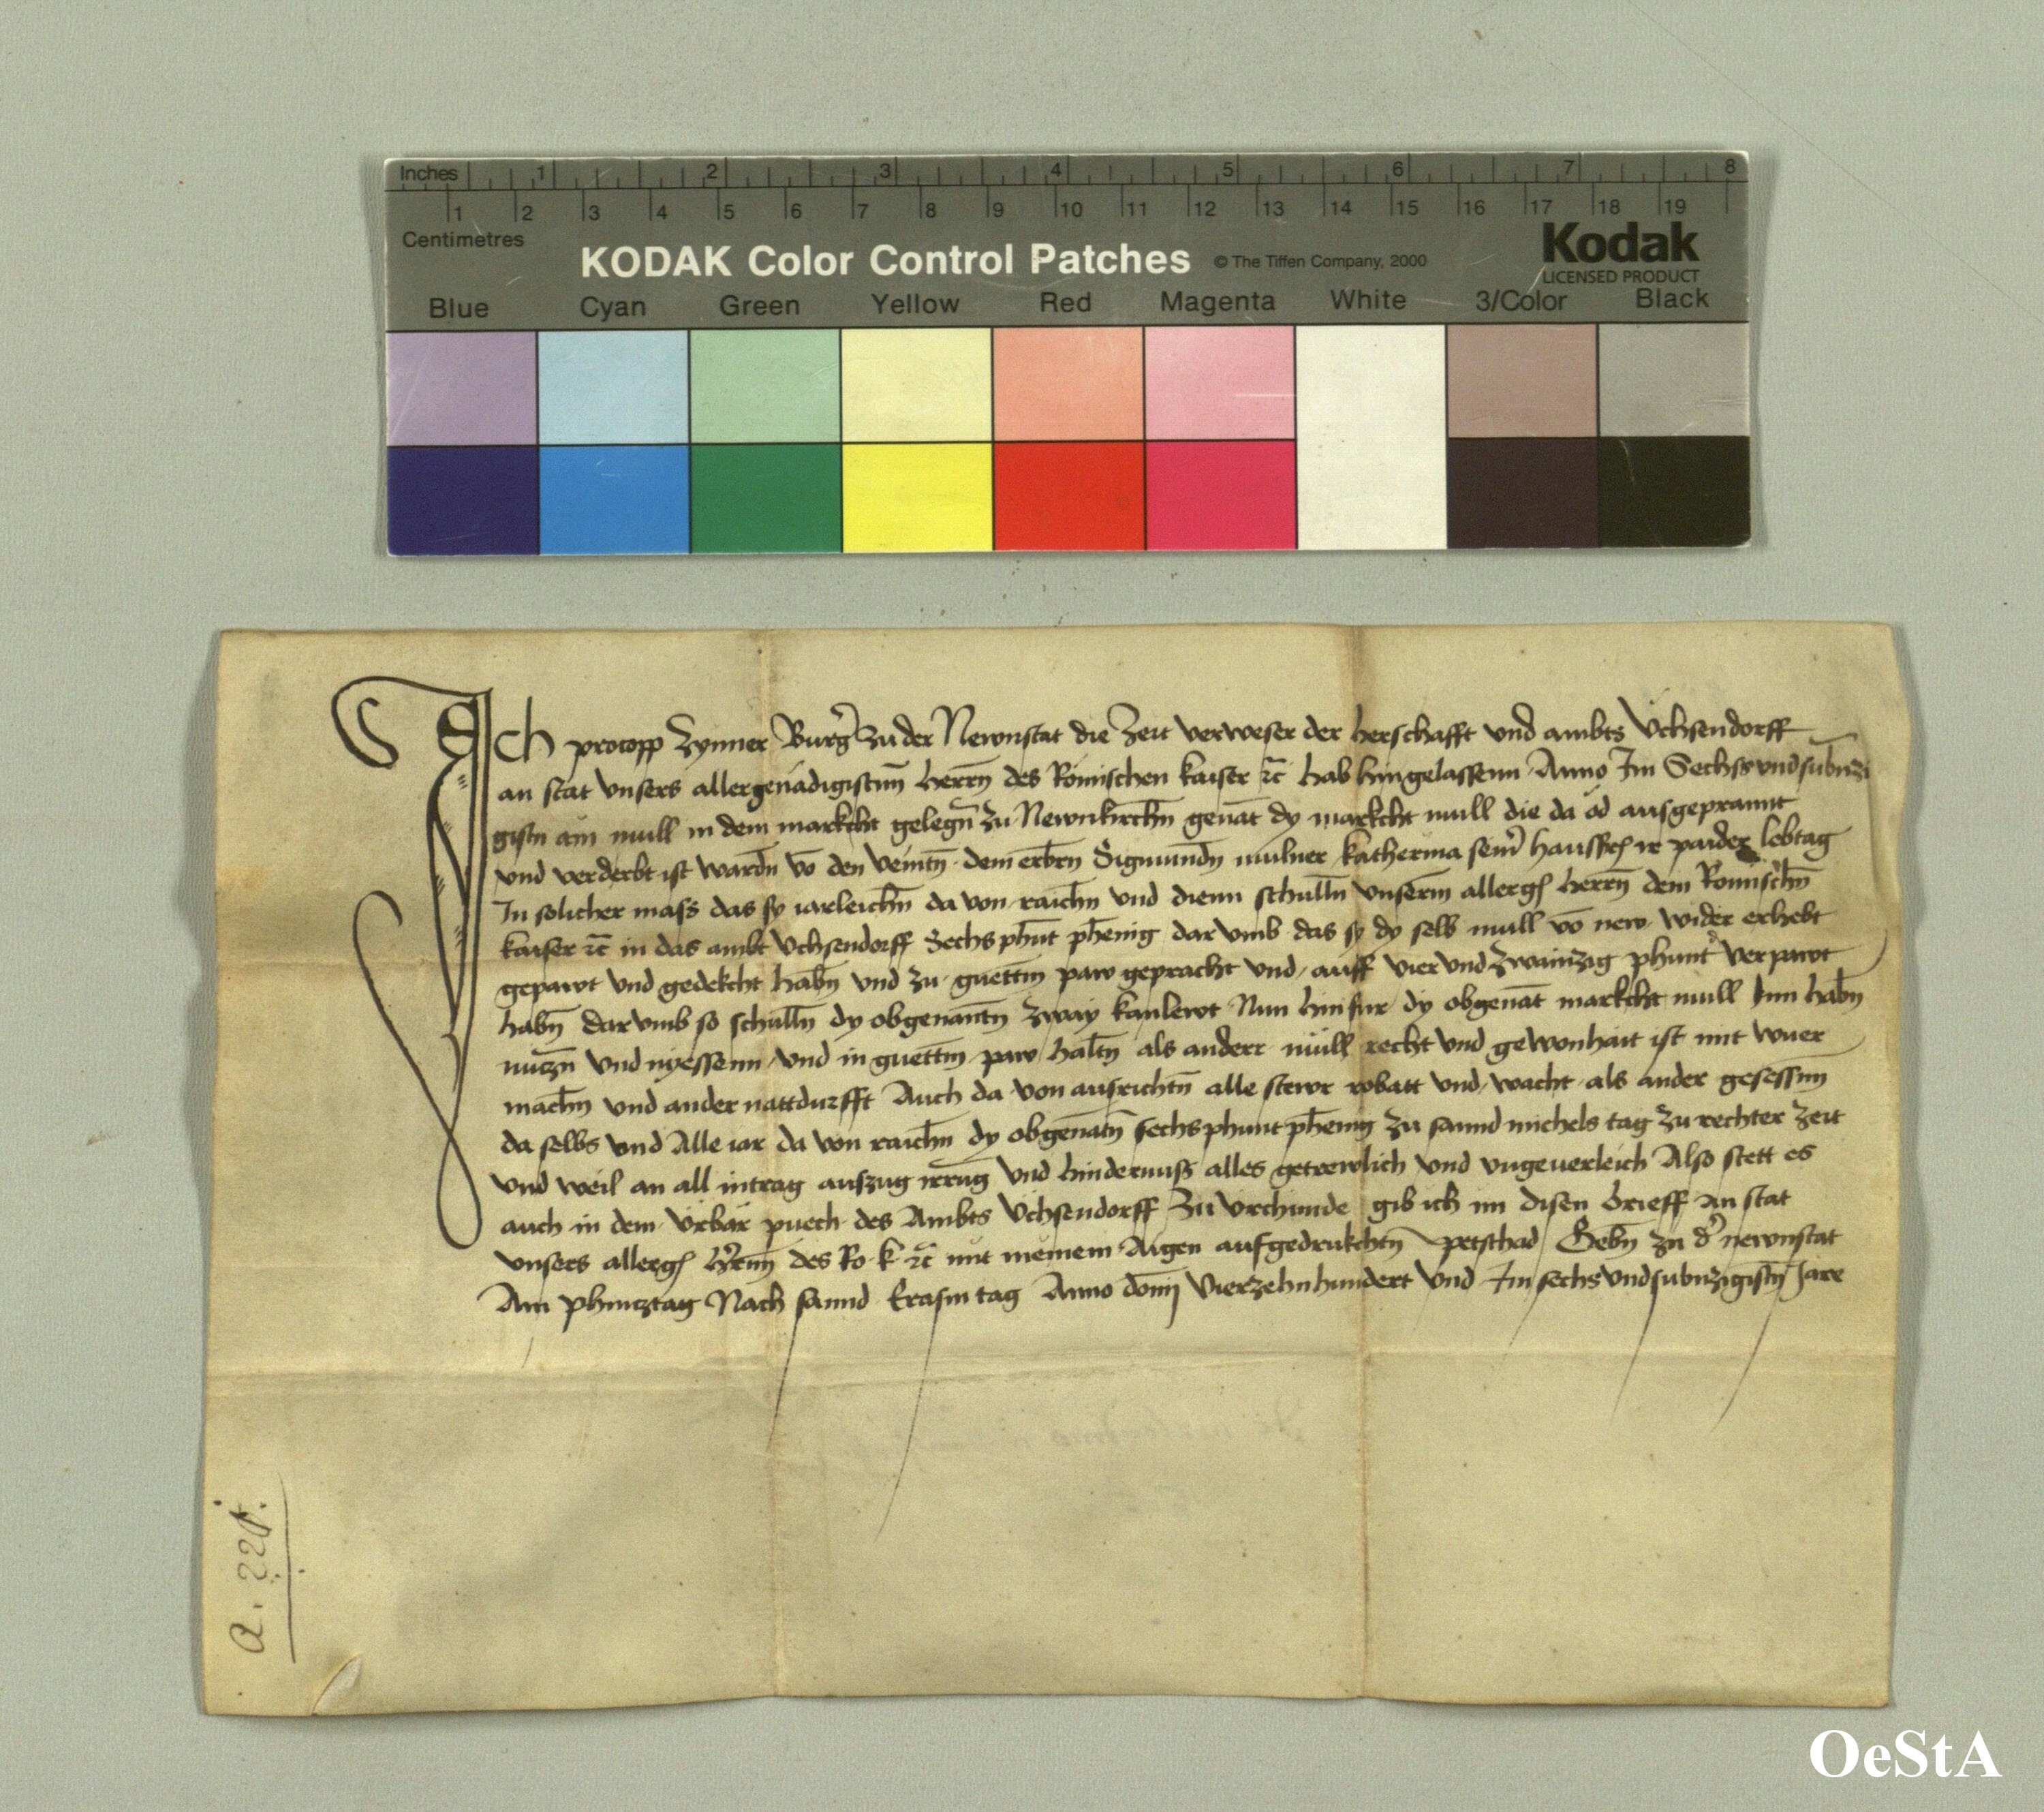 Inches 1 2 3 4 5 6 7 8
1 2 3 4 5 6 7 8 9 10 11 12 13 14 15 16 17 18 19
Centimetres
KODAK Color Control Patches © The Tiffen Company, 2000 Kodak
LICENSED PRODUCT
Blue Cyan Green Yellow Red Magenta White 3/Color Black
Ich procopp Zynner Burg̉ zu der Newnstat die Zeit verweser der herschafft vnd ambts Vchsendorff
an stat vnsers allergenádigistnn̄ herrn̄ des Römischen kaiser ꝛc̄ hab hingelassenn Anno Im Sechssvndsubn̄zi
gistn ain mull in dem markcht gelegn̄ zu Newnkirchn̄ genāt dy markcht mull die da öd ausgeprannt
vnd verderbt ist wardn̄ vō den veintn̄ dem erbrn̄ Sigmundn̄ mulner katherina sein̉ hausfrꝭ ir paider lebtag
In solicher mass das sy iarleichn̄ da von raichn̄ vnd dienn schulln̄ vnserm̄ allergꝭ herrn̄ dem Romischn̄
kaiser ꝛc̄ in das ambt Vchsendorff Sechs phūt phenig dar vmb das sy dy selb mull vō new wider erhebt
gepawt vnd gedekcht habn̄ vnd zu guettm̄ paw gepracht vnd auff vier vnd zwainzig phunt verpawt
habn̄ dar vmb so schulln̄ dy obgenantn̄ zway kanlewt Nun hinfur dy obgenāt markcht mull Inn habn̄
nuczn̄ vnd nyessenn vnd in guettm̄ paw haltn̄ als anderr müll recht vnd gewonhait ist mit wuer
machn̄ vnd ander nattdurfft Auch da von ausrichtn̄ alle stewr robatt vnd wacht als ander gesessnn̄
da selbs vnd Alle iar da von raichn̄ dy obgenātn̄ sechs phunt phenig zu sannd michels tag zu rechter zeit
vnd weil an all intrag auszug irrūg vnd hindernuss alles getrewlich vnd vngeuerleich Also stett es
auch in dem vrbar puech des Ambts Vchsendorff Zu vrchunde gib ich im disen brieff an stat
vnsers allergꝭ h̉rnn̄ des Ro k ꝛc̄ mit meinem Aigen aufgedrukchtn̄ petschad Gebn̄ zu d̉ newnstat
Am phincztag Nach sannd Erasm tag Anno domi̅ Vierzehnhundert vnd Im sechsvndsubnzigistn̄ Jare
OeStA